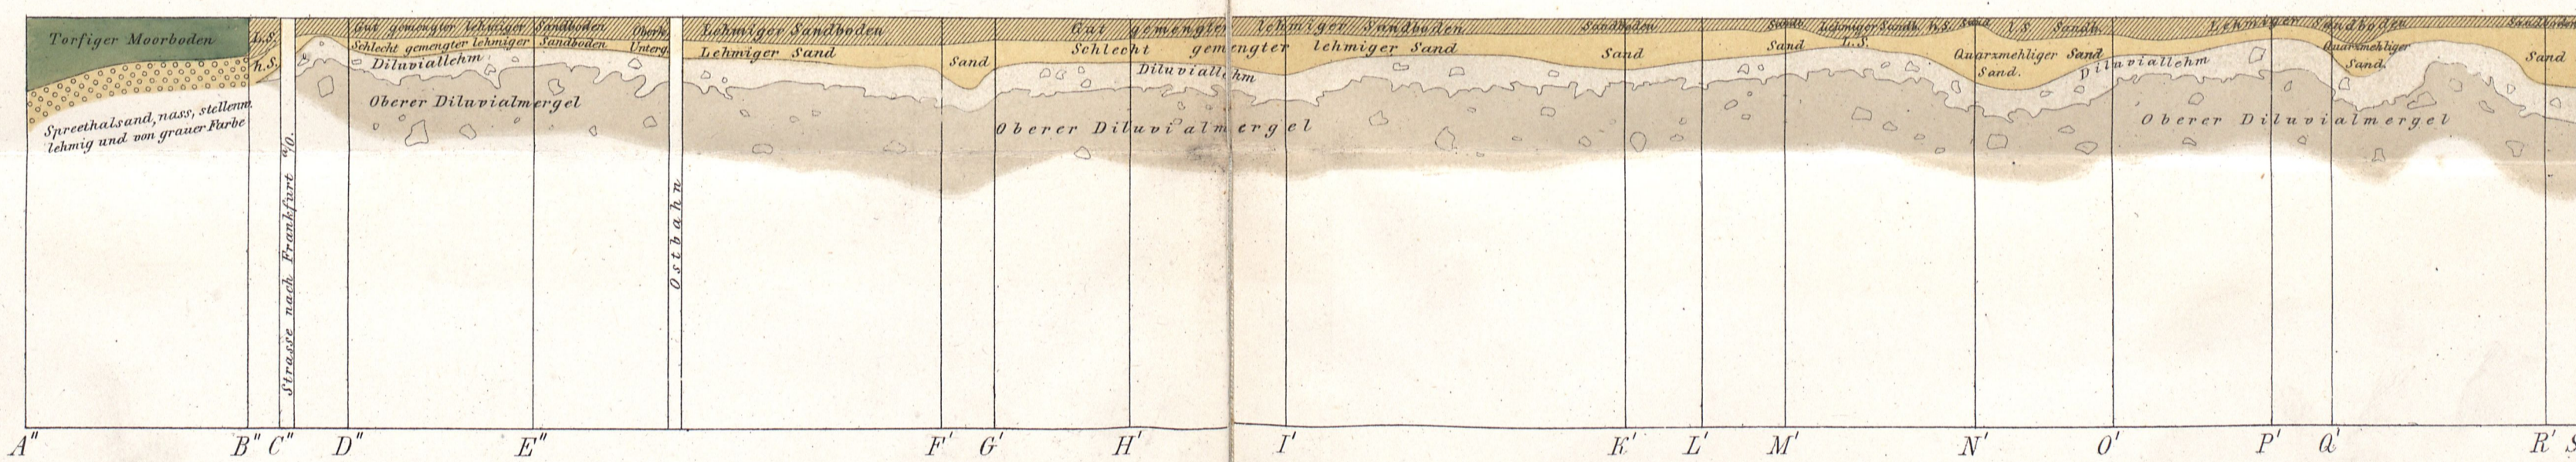 Torfiger Moorboden
L.S.
h.S.
Spreethalsand, nass, stellenw.
lehmig und von grauer Farbe
Strasse nach Frankfurt a/O.
Gut gemengter lehmiger Sandboden Oberk.
Schlecht gemengter lehmiger Sandboden Unterg.
Diluviallehm
Oberer Diluvialmergel
Ostbahn
Lehmiger Sandboden
Lehmiger Sand
Sand
Gut gemengter lehmiger Sandboden
Schlecht gemengter lehmiger Sand
Diluviallehm
Oberer Diluvialmergel
Sandboden
Sand
Sandb. lehmiger Sandb. h.S. Sand l.S. Sandb.
Sand L.S.
Quarzmehliger Sand
Sand.
Diluviallehm
Lehmiger Sandboden
Quarzmehliger
Sand.
Oberer Diluvialmergel
Sandboden
Sand
A" B" C" D" E" F' G' H' I' K' L' M' N' O' P' Q' R' S